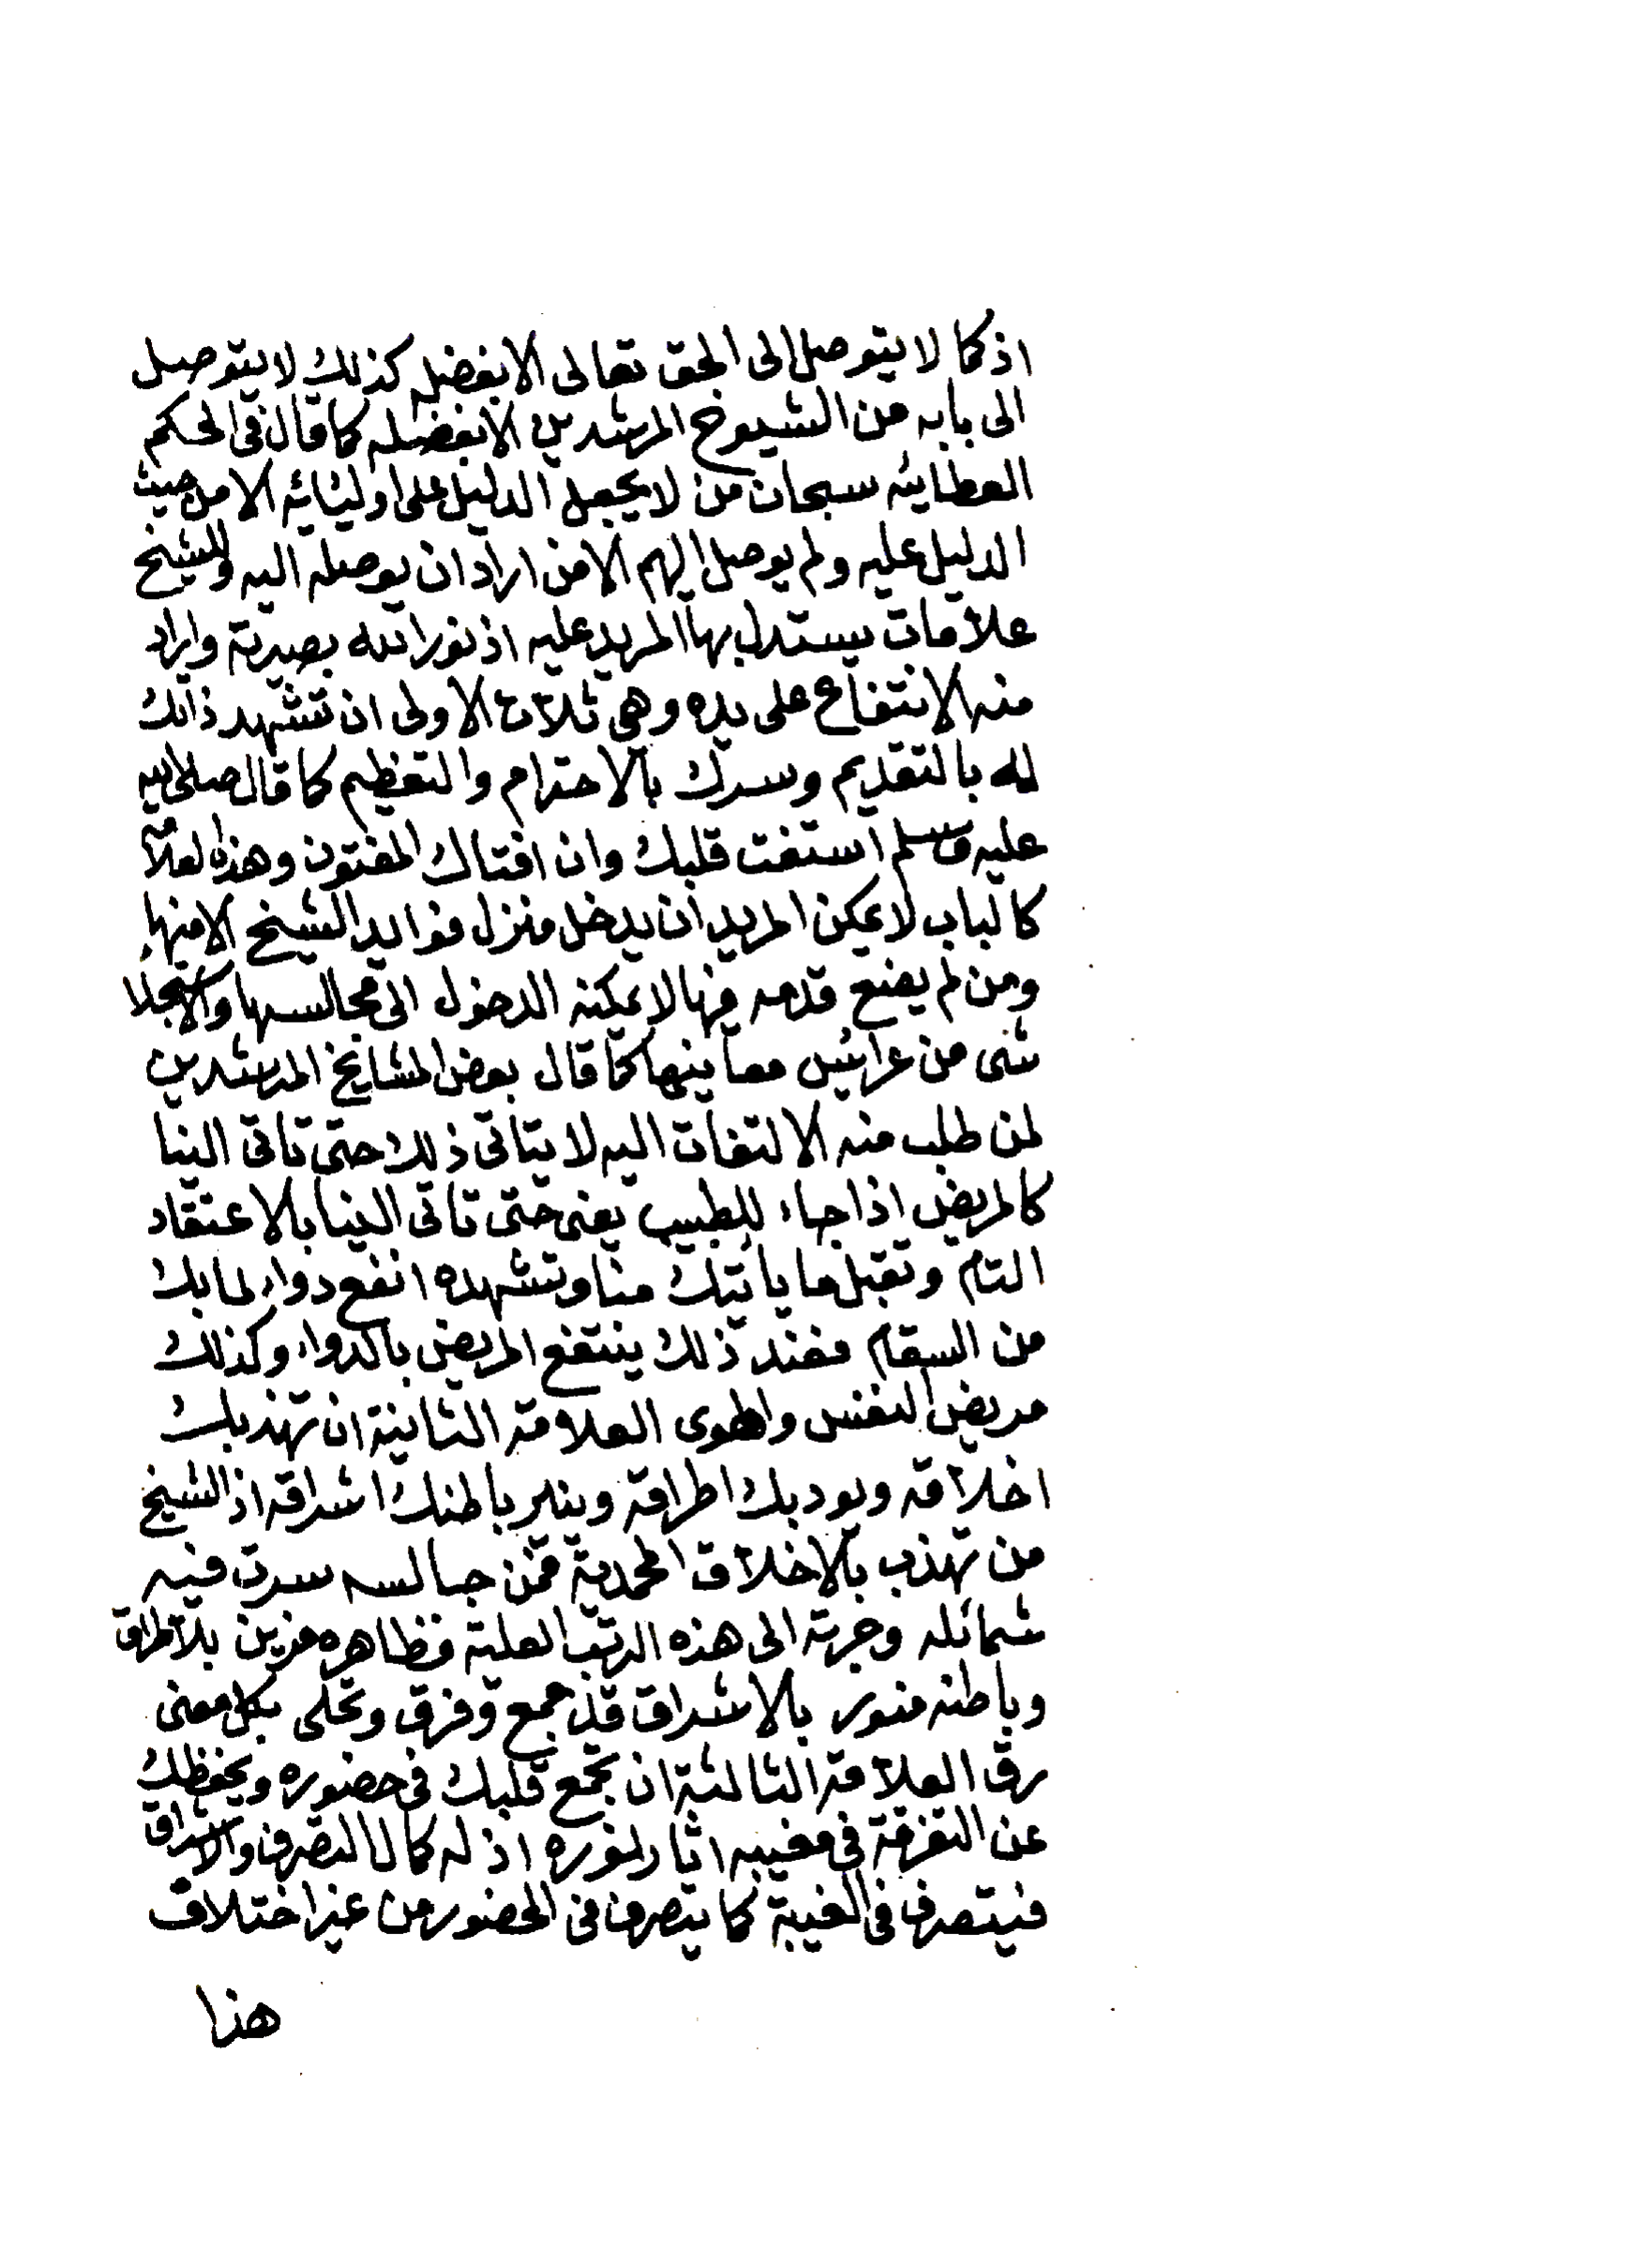 اذ كما لا يتوصل الى الحق تعالى الا بفضله كذلك لا يتوصل
الى بابه من الشيوخ المرشدين الا بفضله كما قال فى الحكم
العطايئه سبحان من لا يجعل الدليل على اوليائه الا من حيث
الدليل عليه ولم يوصل اليهم الا من اراد ان يوصله اليه وللشيخ
علامات يستدل بها المريد عليه اذ نور الله بصيرته واراد
منه الانتفاع على يده وهى ثلاث الاولى ان تشهد ذاتك
له بالتقديم وسرك بالاحترام والتعظيم كما قال صلى الله
عليه وسلم استفت قلبك وان افتاك المفتون وهذه العلامة
كالباب لا يمكن المريد ان يدخل منزل فوايد الشيخ الا منها
ومن لم يضع قدمه فيها لا يمكنه الدخول الى مجالسها والاستجلا
شى من عرائس معانيها كما قال بعض المشايخ المرشدين
لمن طلب منه الالتفات اليه لا يتاتى ذلك حتى تاتى الينا
كالمريض اذا جاء للطبيب يعنى حتى تاتى الينا بالاعتقاد
التام وتقبل ما ياتيك منا وتشهده انفع دواء لما بك
من السقام فعند ذلك ينتفع المريض بالدواء وكذلك
مريض النفس والهوى العلامة الثانية ان تهذبك
اخلاقه ويودبك اطراقه وينير باطنك اشراقه اذ الشيخ
من تهذب بالاخلاق المحمدية فمن جالسه سرت فيه
شمائله وجرته الى هذه الرتب العلية فظاهره مزين بالاطراق
وباطنه منور بالاشراق قد جمع وفرق وتحلى بكل معنى
رق العلامة الثالثة ان تجمع قلبك فى حضوره ويحفظك
عن التفرقة فى مغيبه اثار نوره اذ له كمال التصرف والاشراق
فيتصرف فى الغيبة كما يتصرف فى الحضور من غير اختلاف
هذا